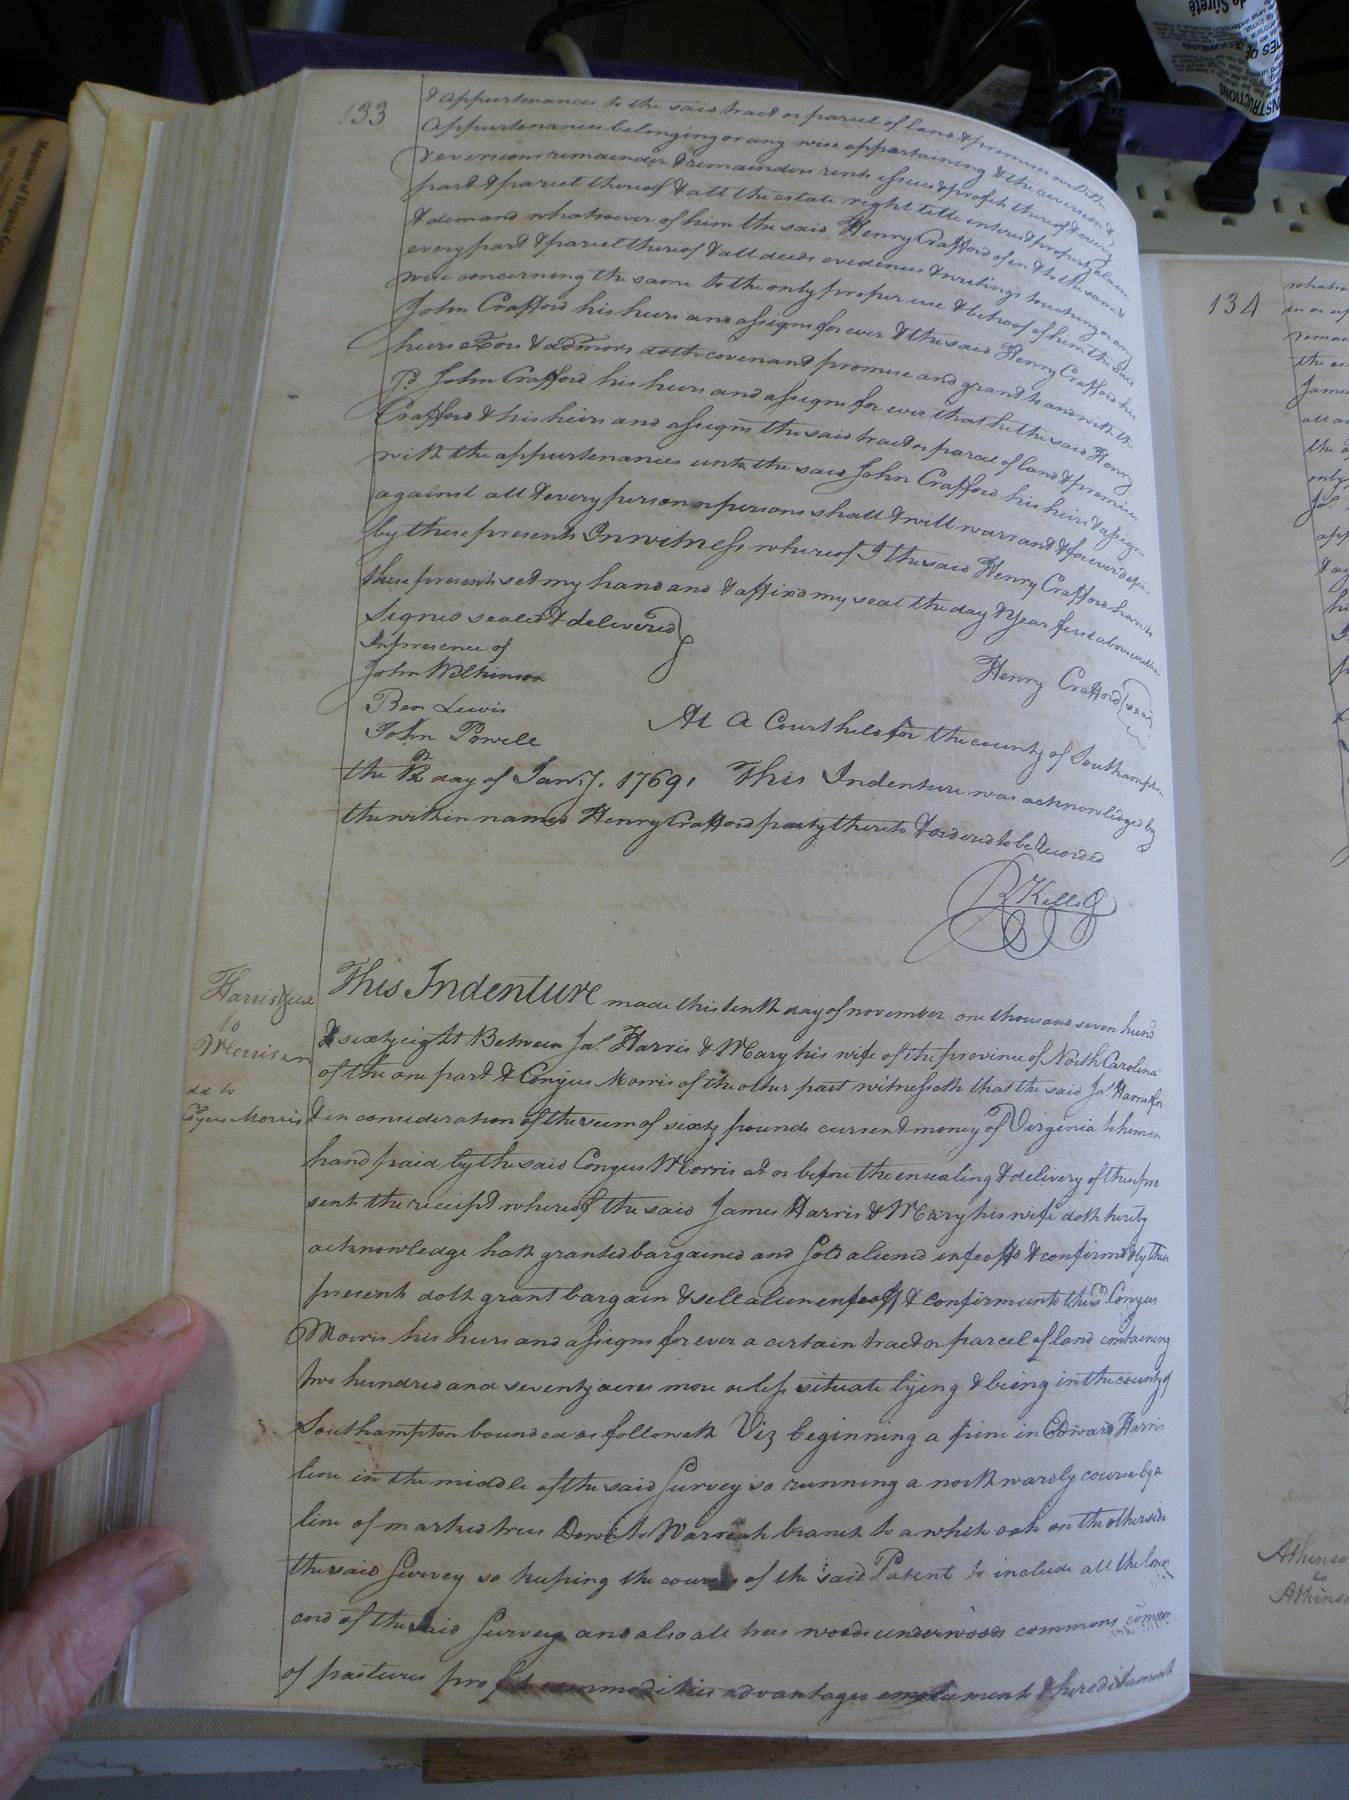 133
& appurtenances to the said tract or parcel of land & premises with the
appurtenances belonging or any wise appertaining & the reversion &
reversions remainder & remainders rents issues & profits thereof & every
part & parcel thereof & all the estate right title interest property claim
& demand whatsoever of him the said Henry Crafford of in & to the same &
every part & parcel thereof & all deeds evidences & writings touching or any
wise concerning the same to the only proper use & behoof of him the said
John Crafford his heirs and assigns for ever & the said Henry Crafford his
heirs Exors & admors doth covenant promise and grant to and with the
Sd. John Crafford his heirs and assigns for ever that he the said Henry
Crafford & his heirs and assigns the said tract or parcel of land & premises
with the appurtenances unto the said John Crafford his heirs & assigns
against all & every person or persons shall & will warrant & forever defend
by these presents In witness whereof I the said Henry Crafford have to
these presents set my hand and & affixd my seal the day & year first above written
Signed sealed & delivered
In presence of
John Wilkinson
Henry Crafford (seal)
Ben Lewis
John Powell
At a Court held for the county of Southampton
the 12th day of Jany. 1769. This Indenture was acknowledged by
the within named Henry Crafford party thereto & ordered to be recorded
R Kello
Harris & ux
to
Morris
dd to
Congus Morris
This Indenture made this tenth day of november one thousand seven hund
& sixty eight Between Jas. Harris & Mary his wife of the province of North Carolina
of the one part & Congus Morris of the other part witnesseth that the said Jas. Harris for
& in consideration of the sum of sixty pounds current money of Virginia to him in
hand paid by the said Congus Morris at or before the ensealing & delivery of these pre
sents the receipt whereof the said James Harris & Mary his wife doth hereby
acknowledge hath granted bargained and sold aliend enfeoffd & confirmd & by these
present doth grant bargain & sell alien enfeoff & confirm unto the sd. Congus
Morris his heirs and assigns for ever a certain tract or parcel of land containing
two hundred and seventy acres more or less situate lying & being in the county of
Southampton bounded as followeth Viz beginning a pine in Edward Harris
line in the middle of the said Survey so running a northwardly course by a
line of marked trees Down to branch to a white oak on the other side
the said Survey so keeping the courses of the said Patent to include all the
end of the said Survey and also all trees woods underwoods commons common
of pastures profits commodities advantages emolument & hereditaments
134
James
Atkinson
to
Atkinson